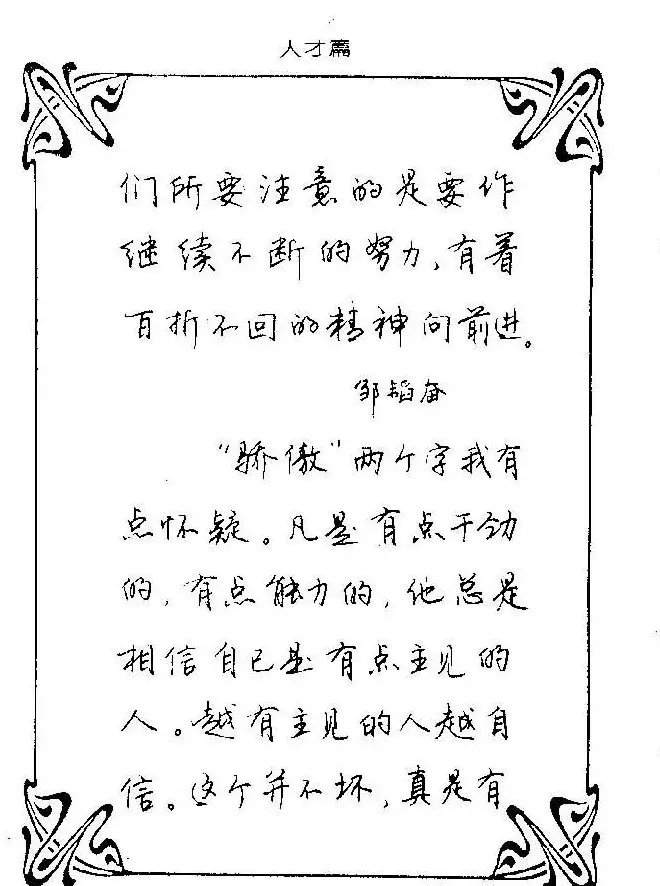 人才篇
们所要注意的是要作
继续不断的努力，有着
百折不回的精神向前进。
邹韬奋
“骄傲”两个字我有
点怀疑。凡是有点干劲
的，有点能力的，他总是
相信自己是有点主见的
人。越有主见的人越自
信。这个并不坏，真是有